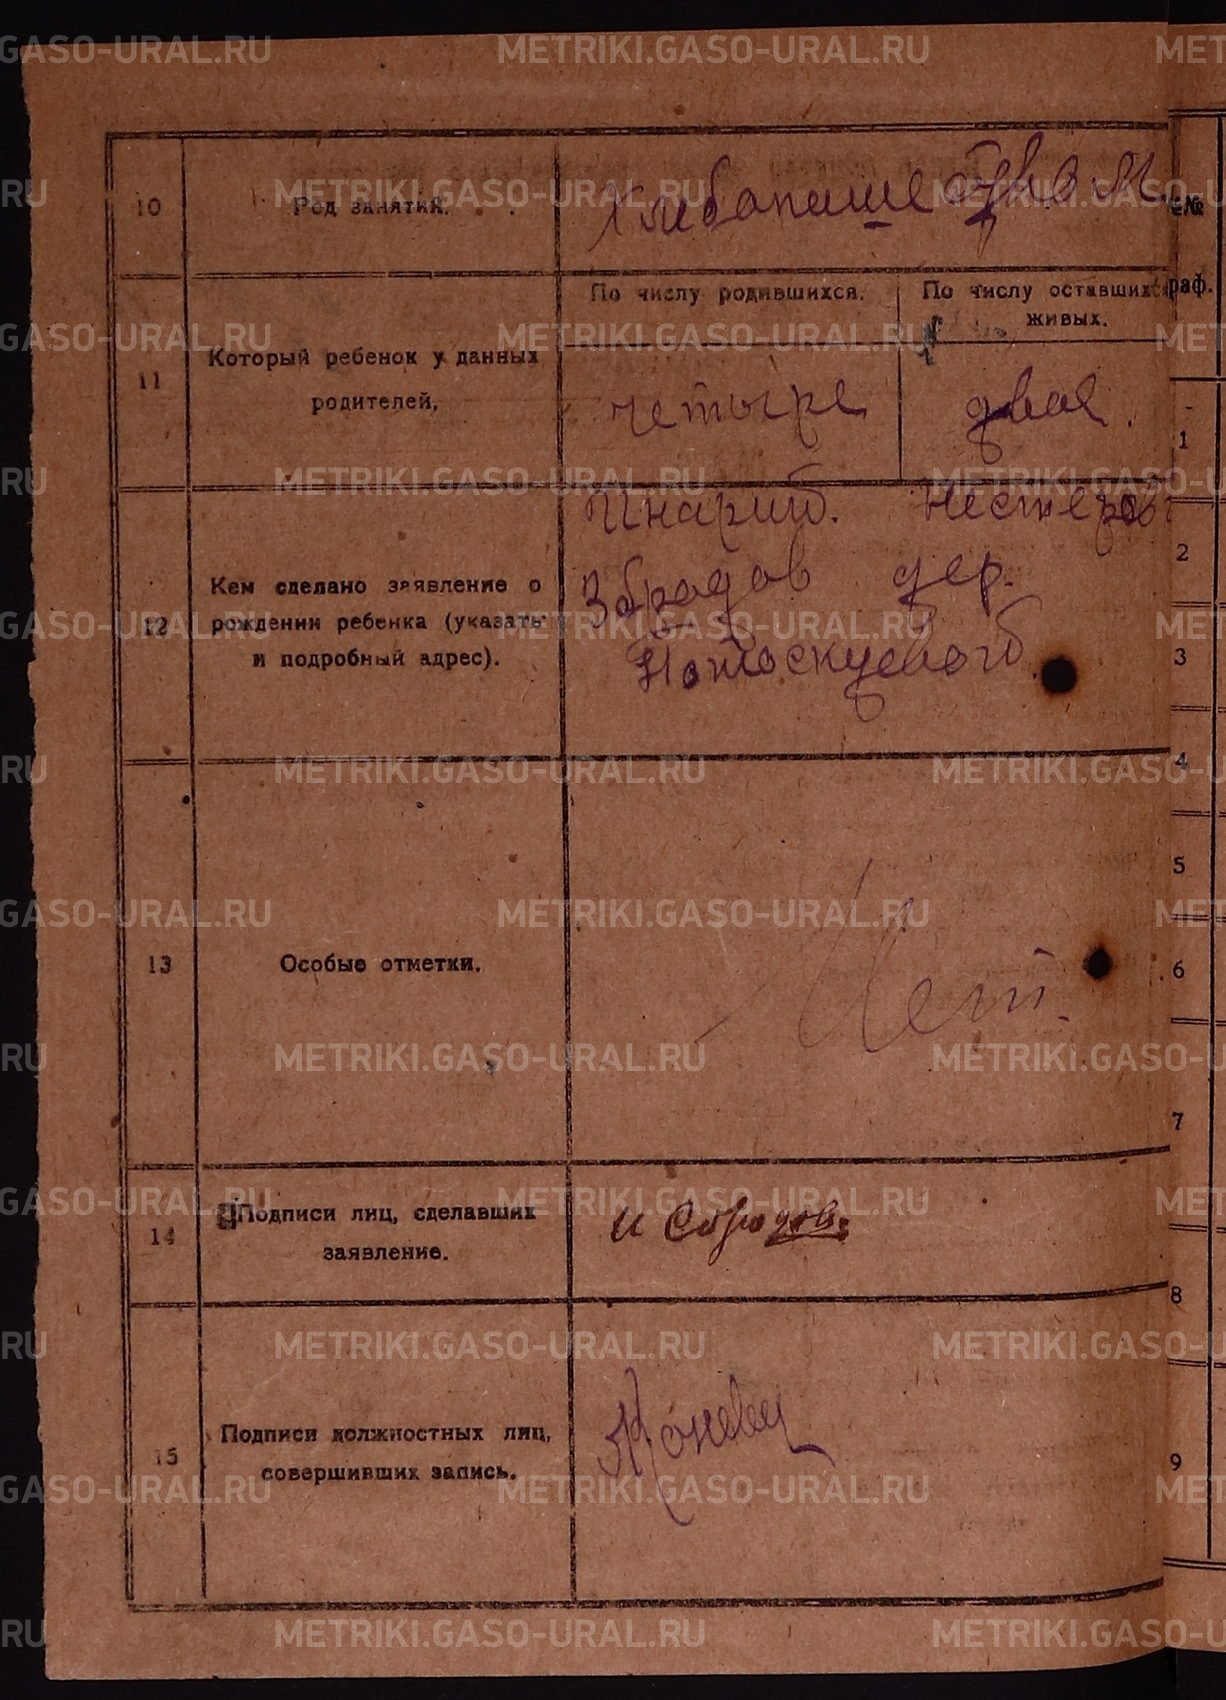 10 Род занятий. Хлибапашеством
11 Который ребенок у данных
родителей,
По числу родившихся.
четыре
По числу оставшихся
живых.
двое.
12 Кем сделано заявление о
рождении ребенка (указать
и подробный адрес).
Нестеров
Збродов дер.
13 Особые отметки.
Нет.
14 Подписи лиц, сделавших
заявление.
И Сбродов.
15 Подписи должностных лиц,
совершивших запись.
№№
граф.
1
2
3
4
5
6
7
8
9
METRIKI.GASO-URAL.RU